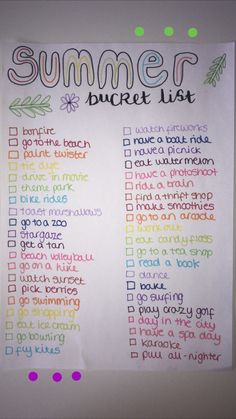 SUMMER
bucket list
bonfire
go to the beach
paint twister
tie dye
drive in movie
theme park
bike rides
toast marshmallows
go to a zoo
stargaze
get a tan
beach volleyball
go on a hike
watch sunset
pick berries
go swimming
go shopping
eat ice cream
go bowling
fly kites
watch fireworks
have a boat ride
have a picnick
eat watermelon
have a photoshoot
ride a train
find a thrift shop
make smoothies
go to an arcade
work out
eat candy floss
go to a tea shop
read a book
dance
bake
go surfing
play crazy golf
day in the city
have a spa day
karaoke
pull all-nighter